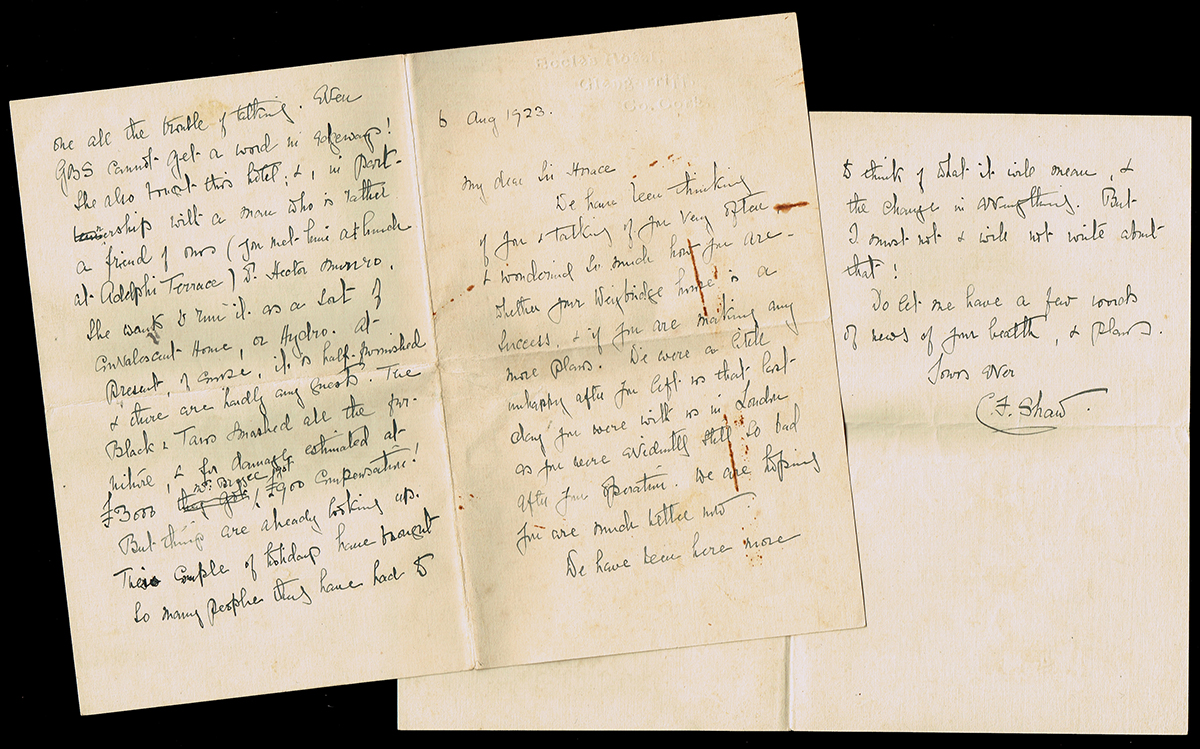 Eccles Hotel,
Glengarriff,
Co. Cork.
6 Aug 1923.
My dear Sir Horace
We have been thinking
of you & talking of you very often,
& wondering so much how you are –
whether your Weybridge home is a
success, & if you are making any
more plans. We were a little
unhappy after you left us that last
day you were with us in London
as you were evidently still so bad
after your operation. We are hoping
you are much better now.
We have been here more
one all the trouble of talking. Even
GBS cannot get a word in edgeways!
She also bought this hotel, &, in part-
nership with a man who is rather
a friend of ours (you met him at lunch
at Adelphi Terrace) Dr. Hector Munro.
She wants to run it as a sort of
Convalescent Home, or Hydro. At
present, of course, it is half-furnished
& there are hardly any guests. The
Black & Tans smashed all the fur-
niture, & for damage estimated at
£3000 they got £900 compensation!
But things are already looking up.
These couple of holidays have brought
so many people they have had to
to think of what it will mean, &
the change in everything. But
I must not & will not write about
that!
Do let me have a few words
of news of your health, & plans.
Yours ever
C. F. Shaw.